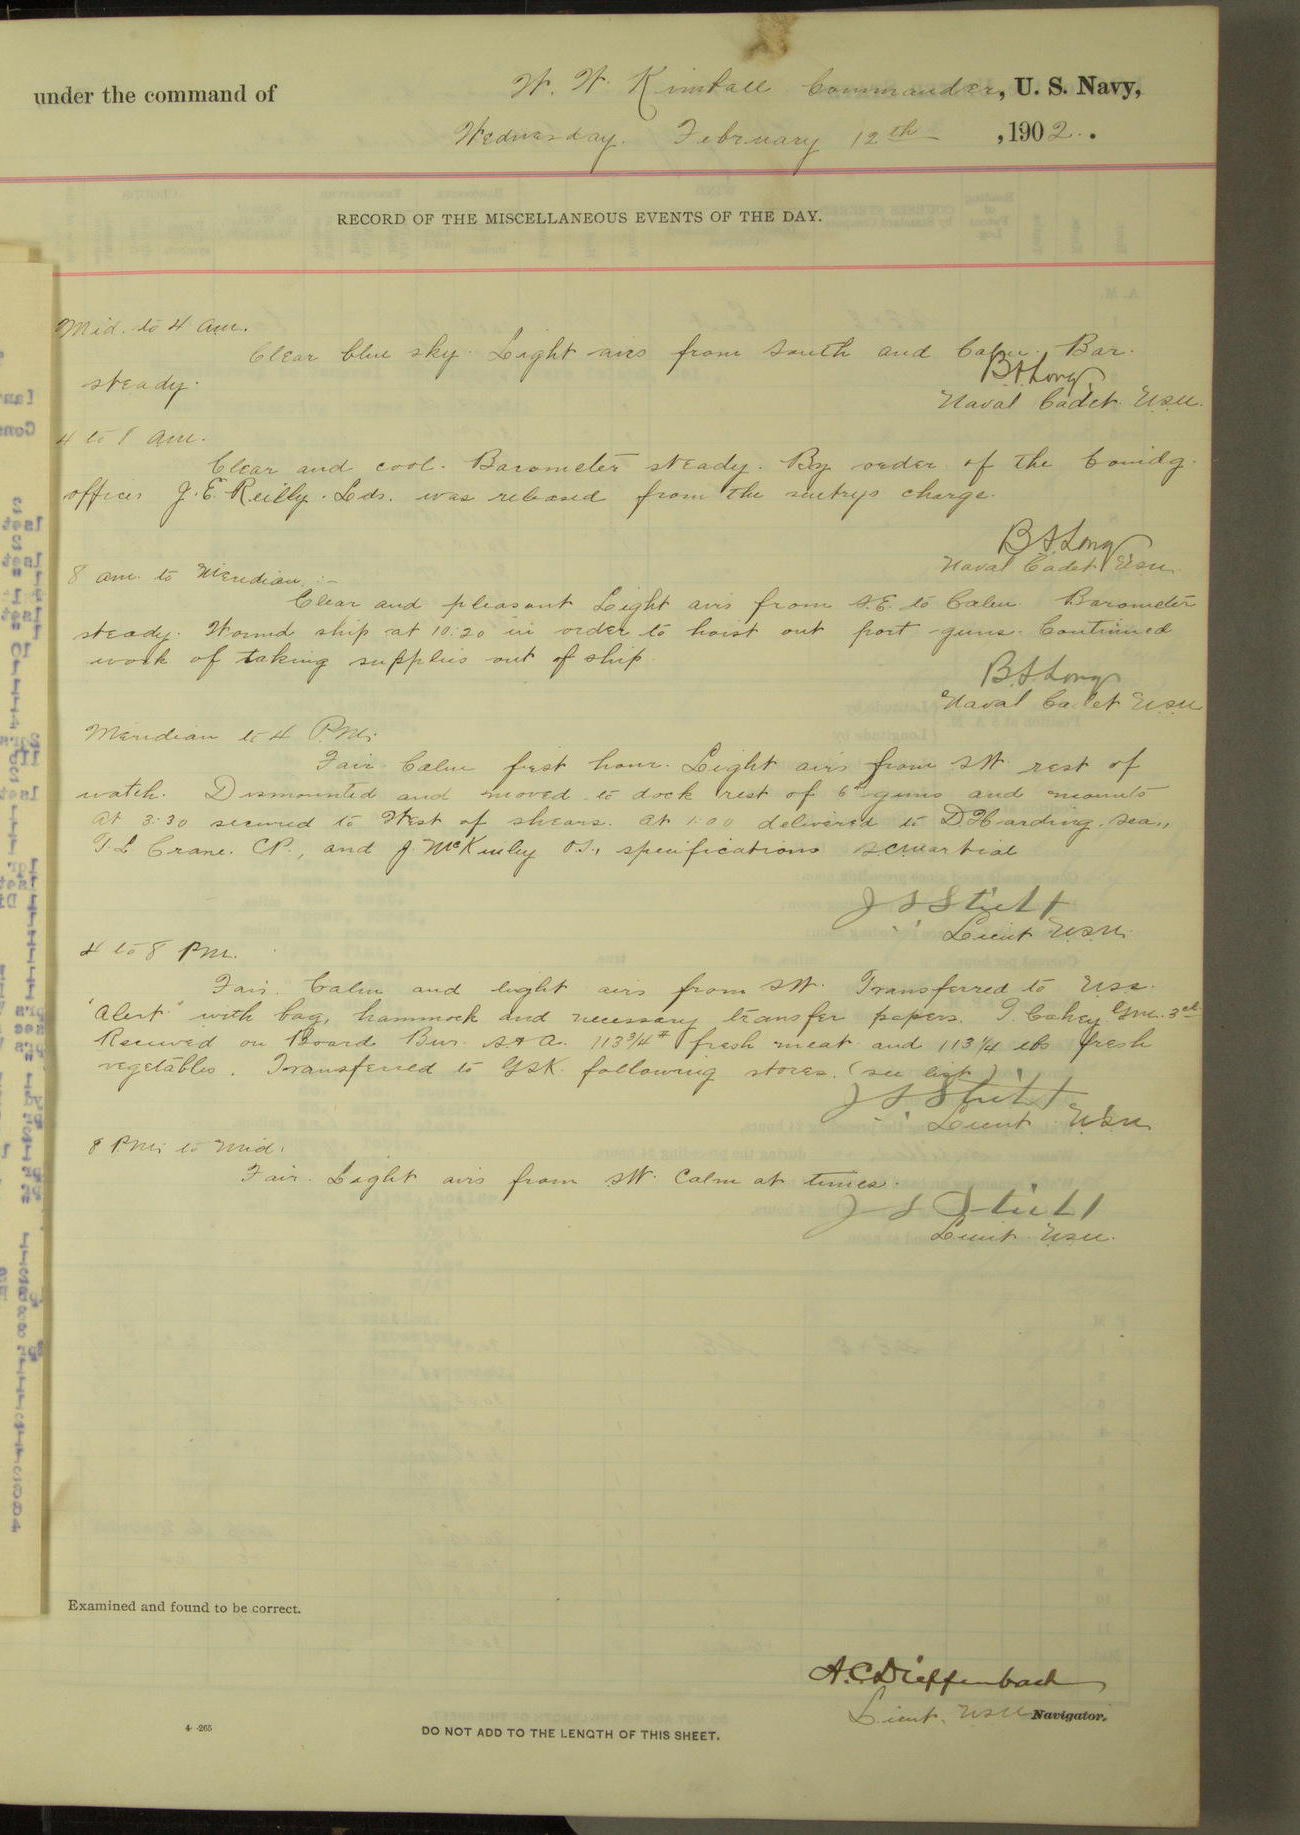 under the command of W. W. Kimball Commander, U. S. Navy,
Wednesday. February 12th, 1902.
RECORD OF THE MISCELLANEOUS EVENTS OF THE DAY.
Mid. to 4 am.
Clear blue sky. Light airs from South and Calm. Bar.
steady.
B A Long
Naval Cadet. USN.
4 to 8 am.
Clear and cool. Barometer steady. By order of the Comdg.
officer J. E. Reilly. Lds. was released from the sentrys charge.
B A Long
Naval Cadet USN.
8 am. to Meridian :-
Clear and pleasant Light airs from S.E. to Calm. Barometer
steady. Wound ship at 10:20 in order to hoist out port guns. Continued
work of taking supplies out of ship.
B A Long
Naval Cadet USN
Meridian to 4 P.M:
Fair. Calm first hour. Light airs from SW. rest of
watch. Dismounted and moved to dock rest of 6" guns and mounts
At 3:30 secured to West of shears. At 1:00 delivered to D Harding. Sea.,
T L Crane. CP., and J. McKinley OS., specifications SCMartial
J S Stitt
Lieut USN.
4 to 8 P.M.
Fair. Calm and light airs from SW. Transferred to USS.
"Alert" with bag, hammock and necessary transfer papers. T. Cahey GM. 3cl
Received on Board Bur. S & A. 113 3/4 # fresh meat and 113 1/4 lbs fresh
vegetables. Transferred to GSK. following stores. (see list)
J S Stitt
Lieut USN
8 PM: to Mid.
Fair. Light airs from SW. Calm at times.
J S Stitt
Lieut. USN.
Examined and found to be correct.
A. C. Dieffenbach
Lieut. USN Navigator.
4—265
DO NOT ADD TO THE LENGTH OF THIS SHEET.